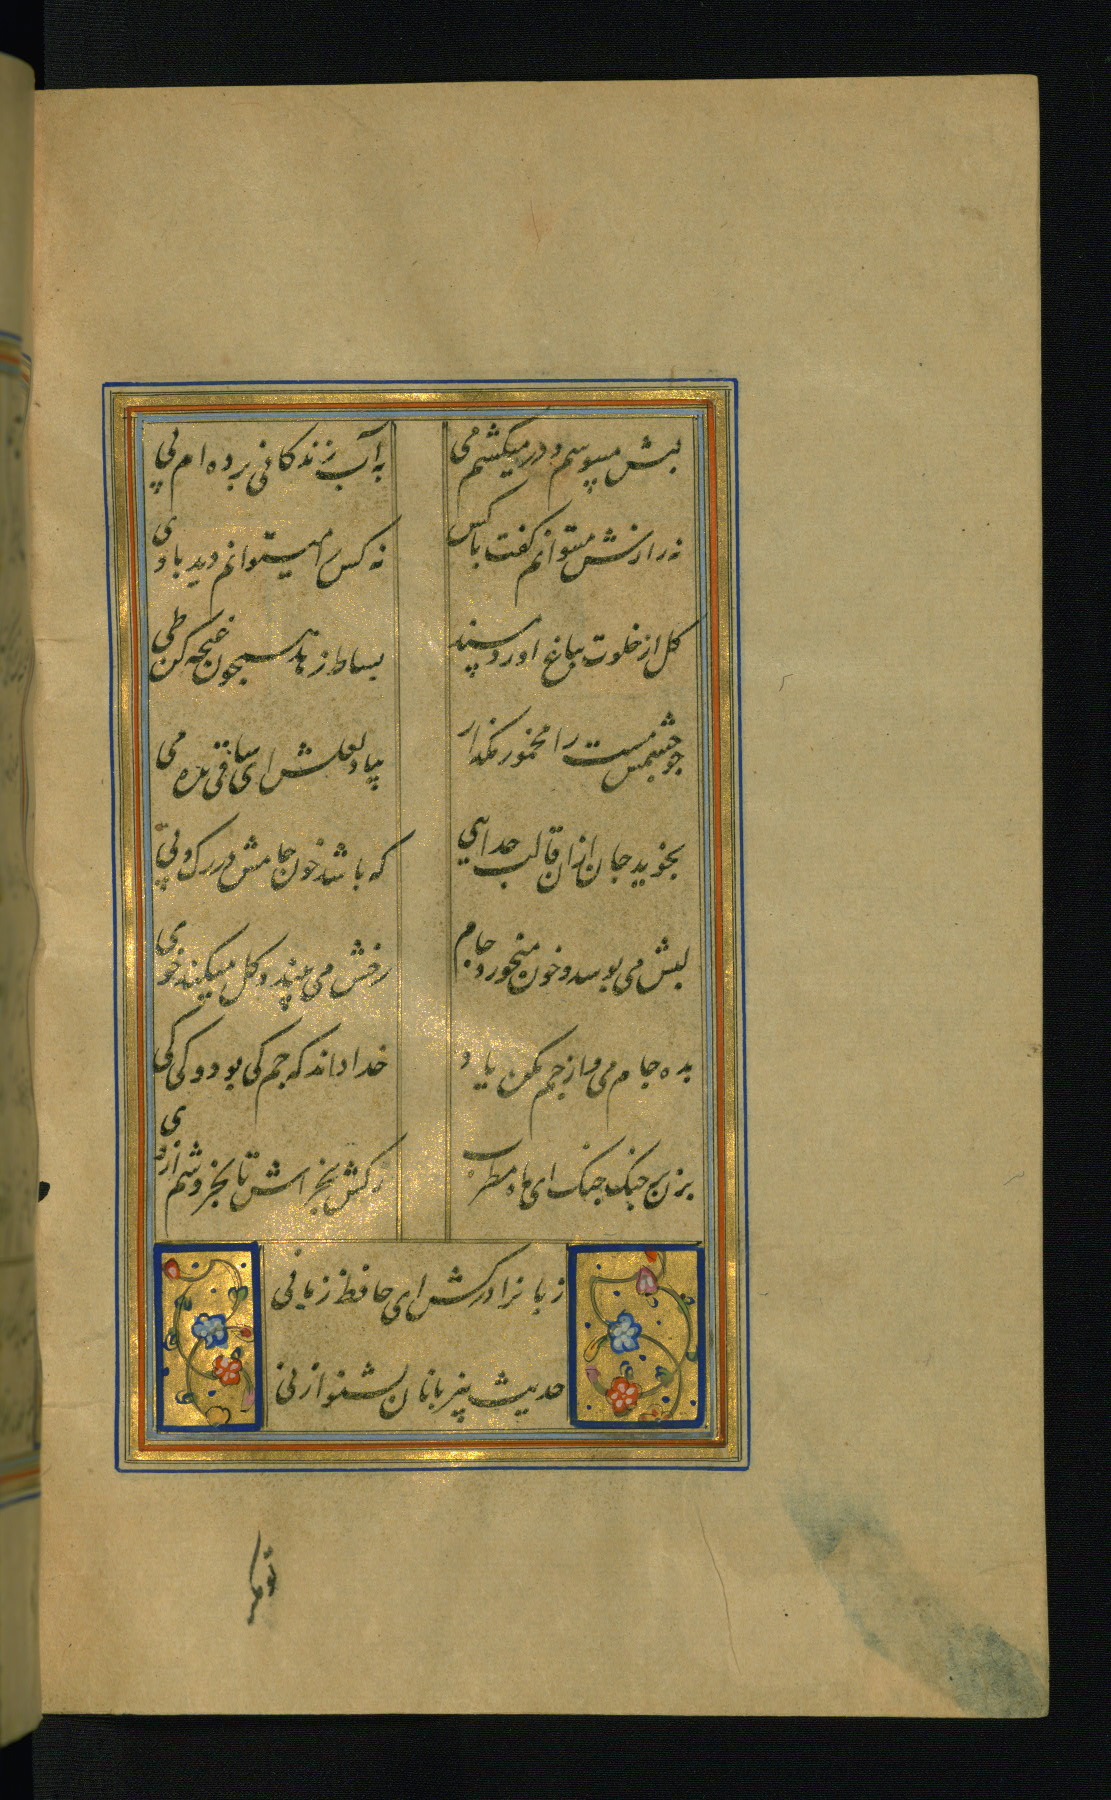 لبش میبوسم و در میکشم می
به آب زندکانی برده ام پی
نه رازش میتوانم کفت با کس
نه کس را میتوانم دید با وی
کل از خلوت بباغ اورد مسند
بساط زهد همچون غنچه کن طی
چو چشمش مست را مخمور مکذار
بیاد لعلش ای ساقی بده می
نجوید جان از ان قالب جدایی
که باشد خون جامش در رک و پی
لبش می بوسد و خون میخورد جام
رخش می بیند و کل میکند خوی
بده جام می و از جم مکن یاد
خدا داند که جم کی بود و کی کی
بزن بر چنک چنک ای ماه مطرب
رکش بخراش تا بخروشم از وی
زبانرا درکش ای حافظ زبانی
حدیث بیزبانان بشنو از نی